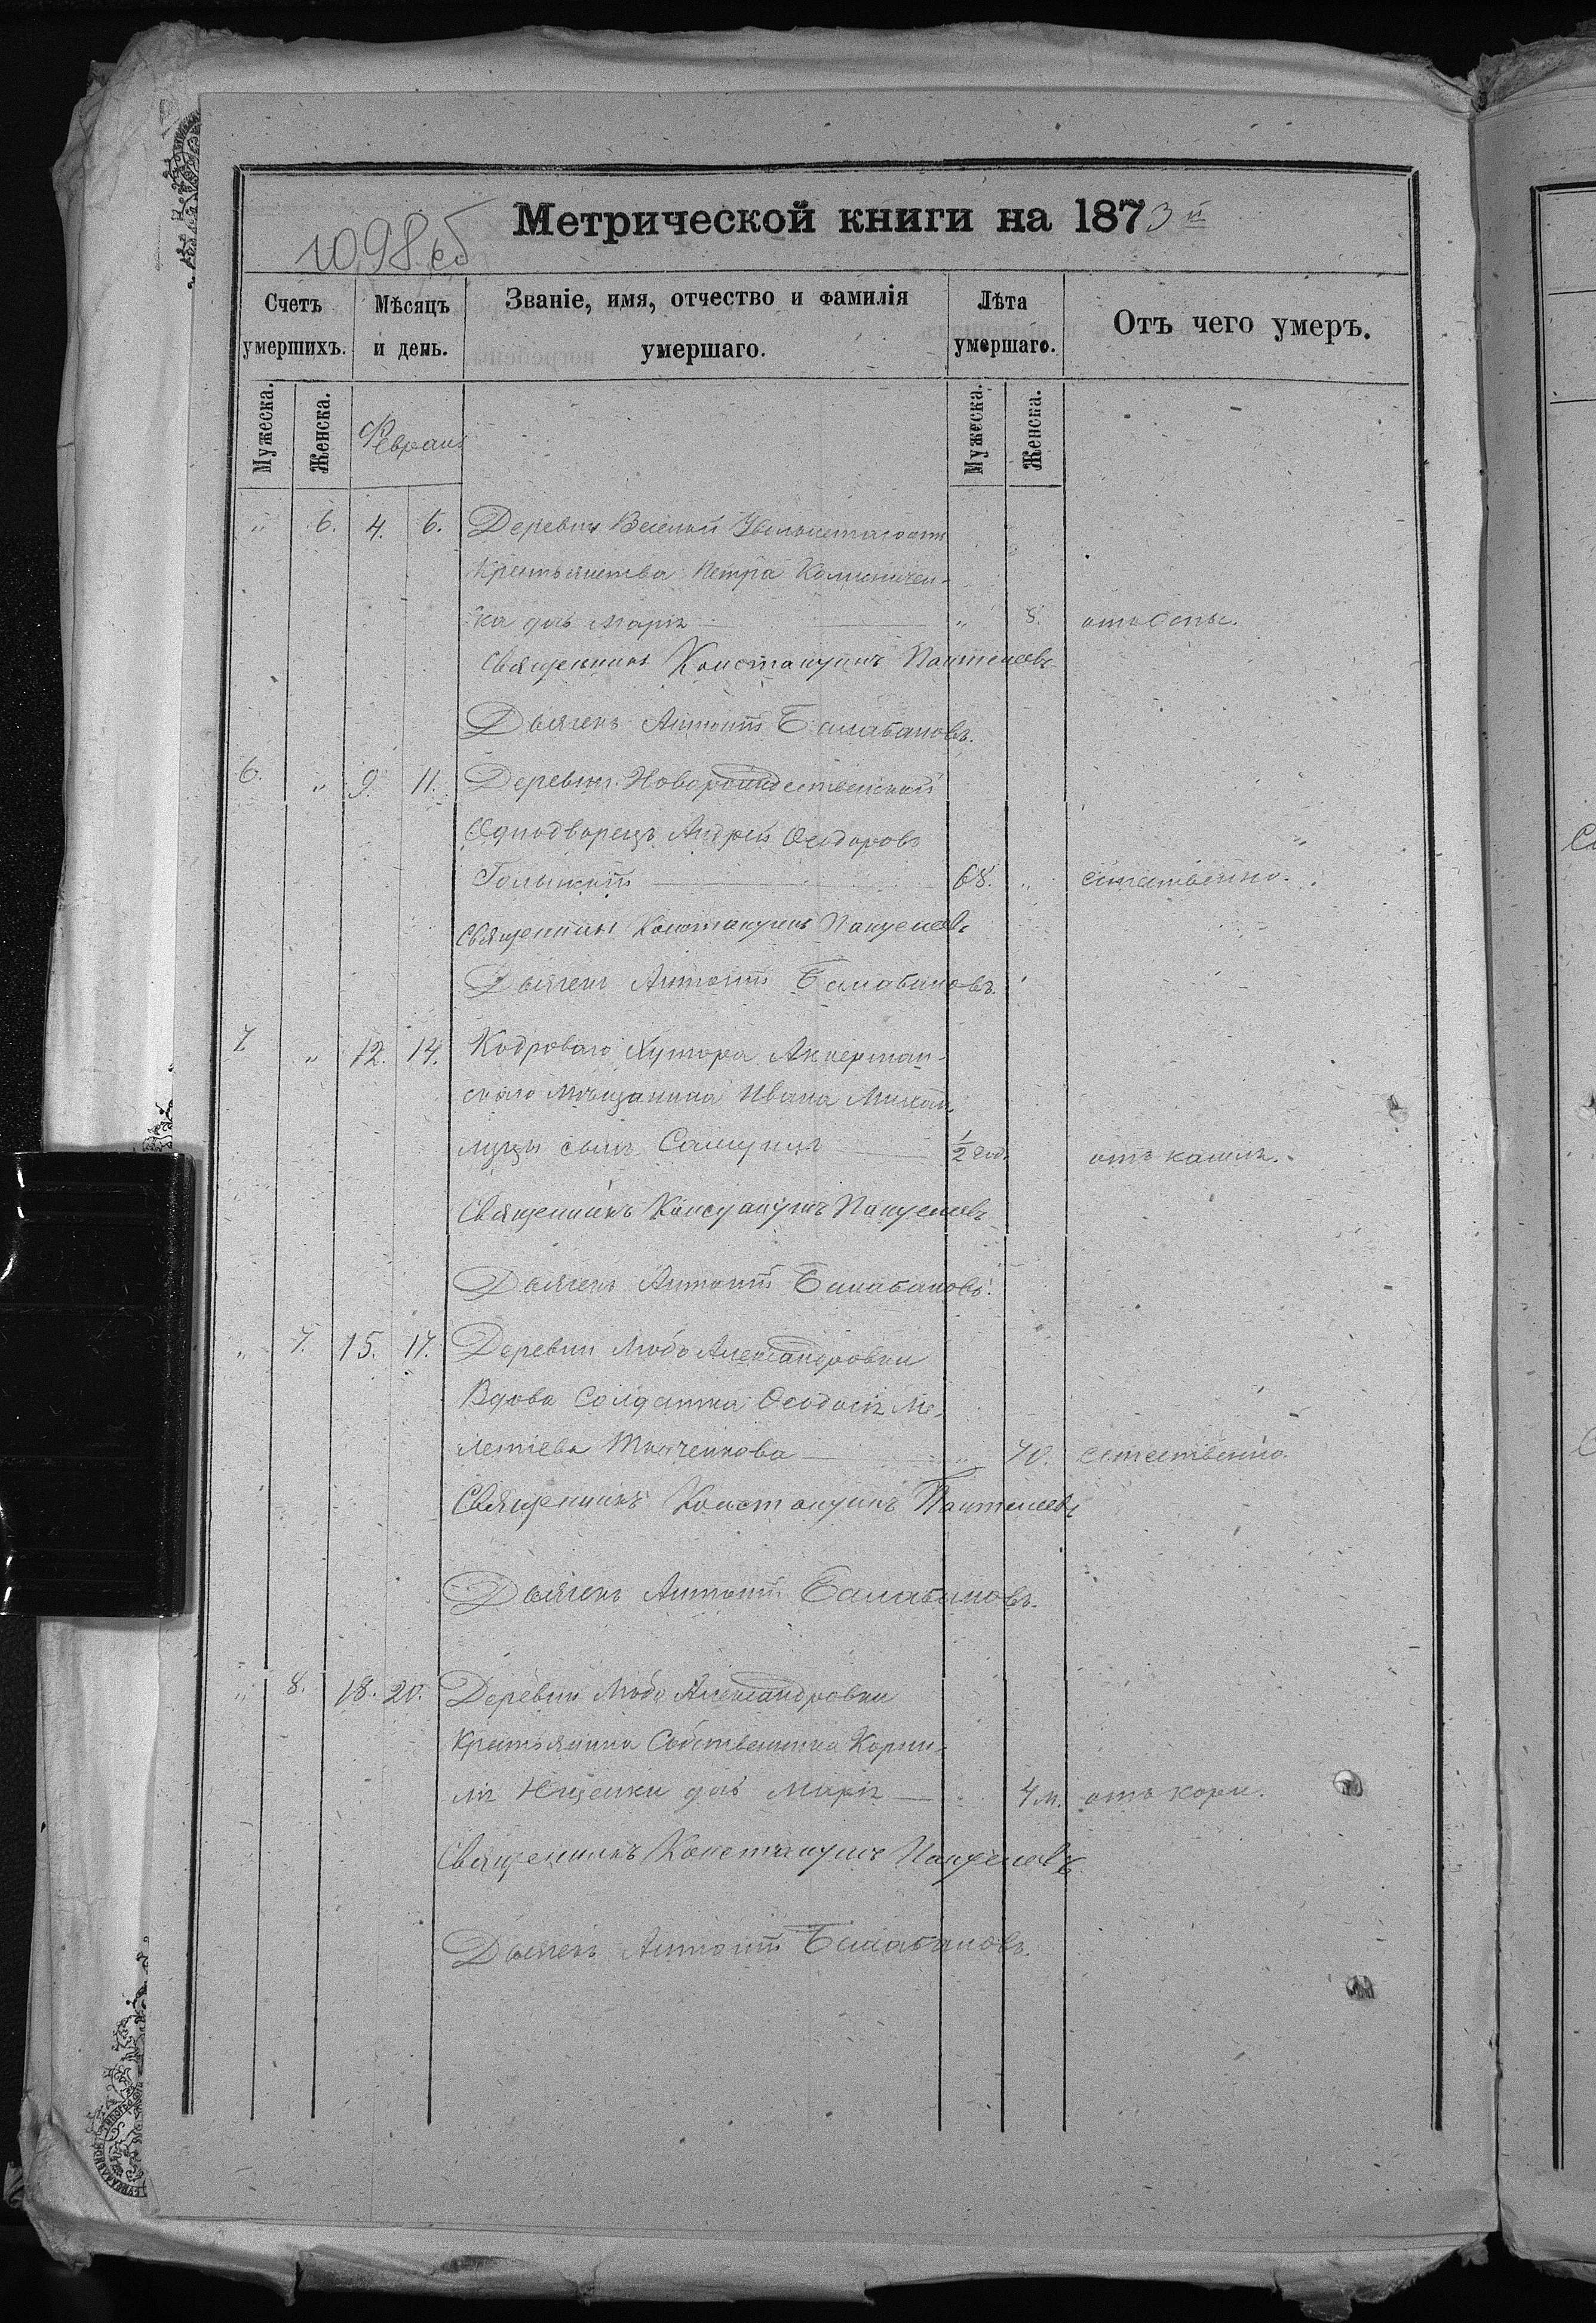 Метрической книги на 1873 й
1098 об
Счетъ умершихъ.
Мѣсяцъ и день.
Званіе, имя, отчество и фамилія умершаго.
Лѣта умершаго.
Отъ чего умеръ.
Мужеска. Женска. Февраль Мужеска. Женска.
„ 6. 4. 6. Деревни Веселой
Петра
ка дочь Марія „ 8. отъ Оспы.
Священникъ Константинъ Пантелеевъ
Дьячекъ Антоній Балабановъ.
6. „ 9. 11. Деревни Новорождественской
Однодворецъ Андрей Ѳеодоровъ
68. „ естественно.
Священникъ Константинъ Пантелеевъ
Дьячекъ Антоній Балабановъ.
7. „ 12. 14. Кодроваго Хутора Аккерман-
скаго Мѣщанина Ивана
сынъ 1/2 год. отъ кашля.
Священникъ Константинъ Пантелеевъ
Дьячекъ Антоній Балабановъ.
„ 7. 15. 17. Деревни Любо Александровки
Вдова Солдатка Ѳеодосія Ме-
летіева Ткаченкова „ 70. естественно.
Священникъ Константинъ Пантелеевъ
Дьячекъ Антоній Балабановъ.
„ 8. 18. 20. Деревни Любо Александровки
Крестьянина Собственника Корни-
лія дочь Марія „ 4 м. отъ кори.
Священникъ Константинъ Пантелеевъ
Дьячекъ Антоній Балабановъ.